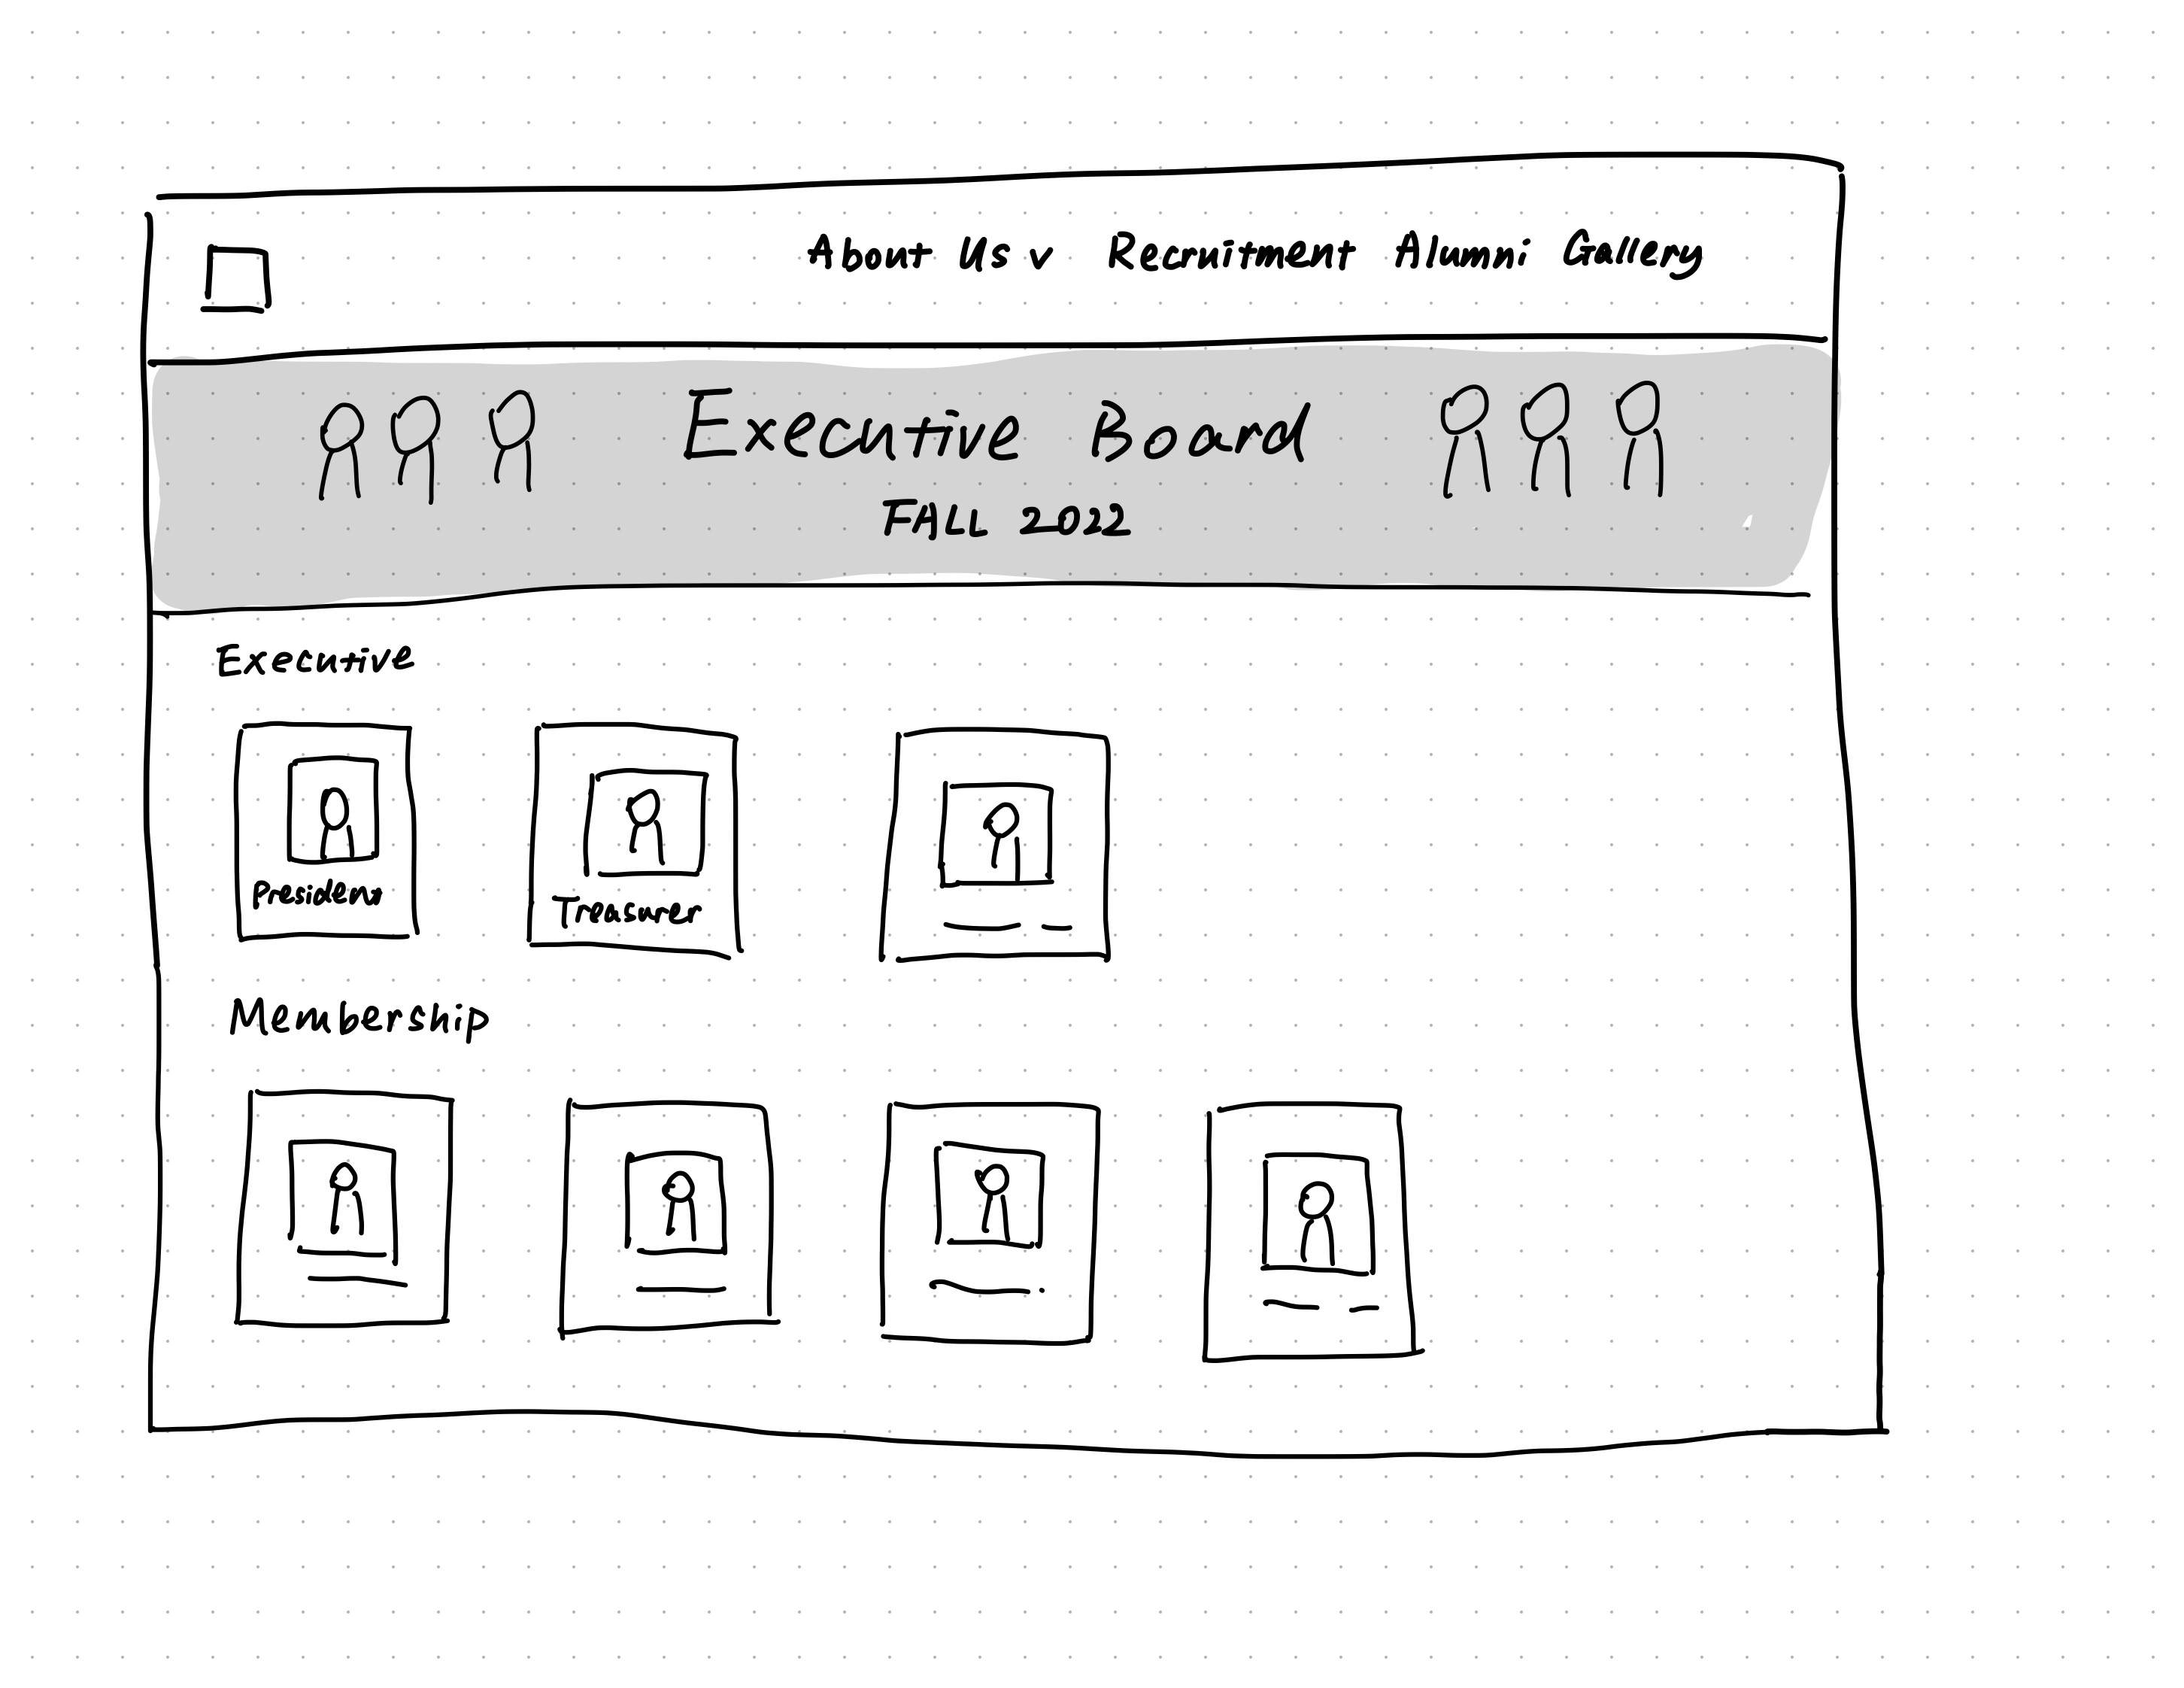 About Us v Recruitment Alumni Gallery
Executive Board
FALL 2022
Executive
President
Treasurer
Membership